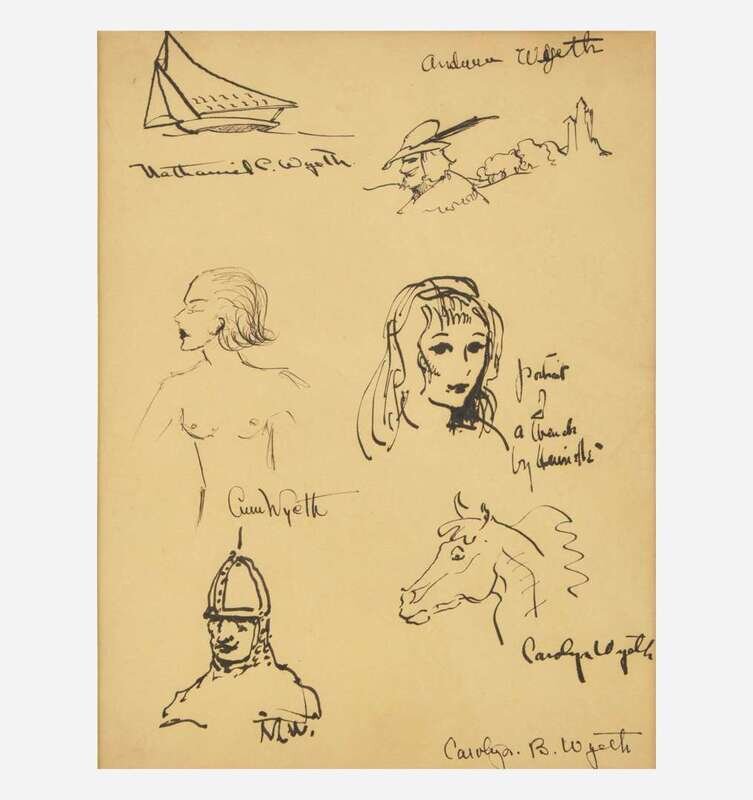 Andrew Wyeth
Nathaniel C. Wyeth
portrait
a
by
Ann Wyeth
Carolyn Wyeth
N.W.
Carolyn. B. Wyeth